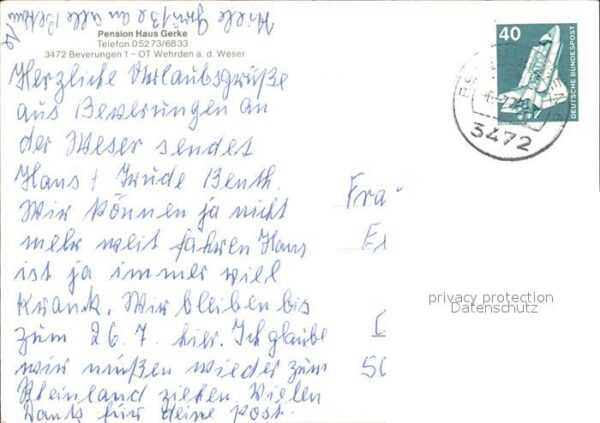 Viele Grüße an alle Bekannte
Pension Haus Gerke
Telefon 05273/6833
3472 Beverungen 1 – OT Wehrden a. d. Weser
Herzliche Urlaubsgrüße
aus Beverungen an
der Weser sendet
Hans + Trude Benth.
Wir können ja nicht
mehr weit fahren Hans
ist ja immer viel
Krank. Wir bleiben bis
zum 26.7. hier. Ich glaube
wir müßen wieder zum
Rheinland ziehen. Vielen
Dank für deine Post.
40
DEUTSCHE BUNDESPOST
3472
Frau
privacy protection
Datenschutz
50